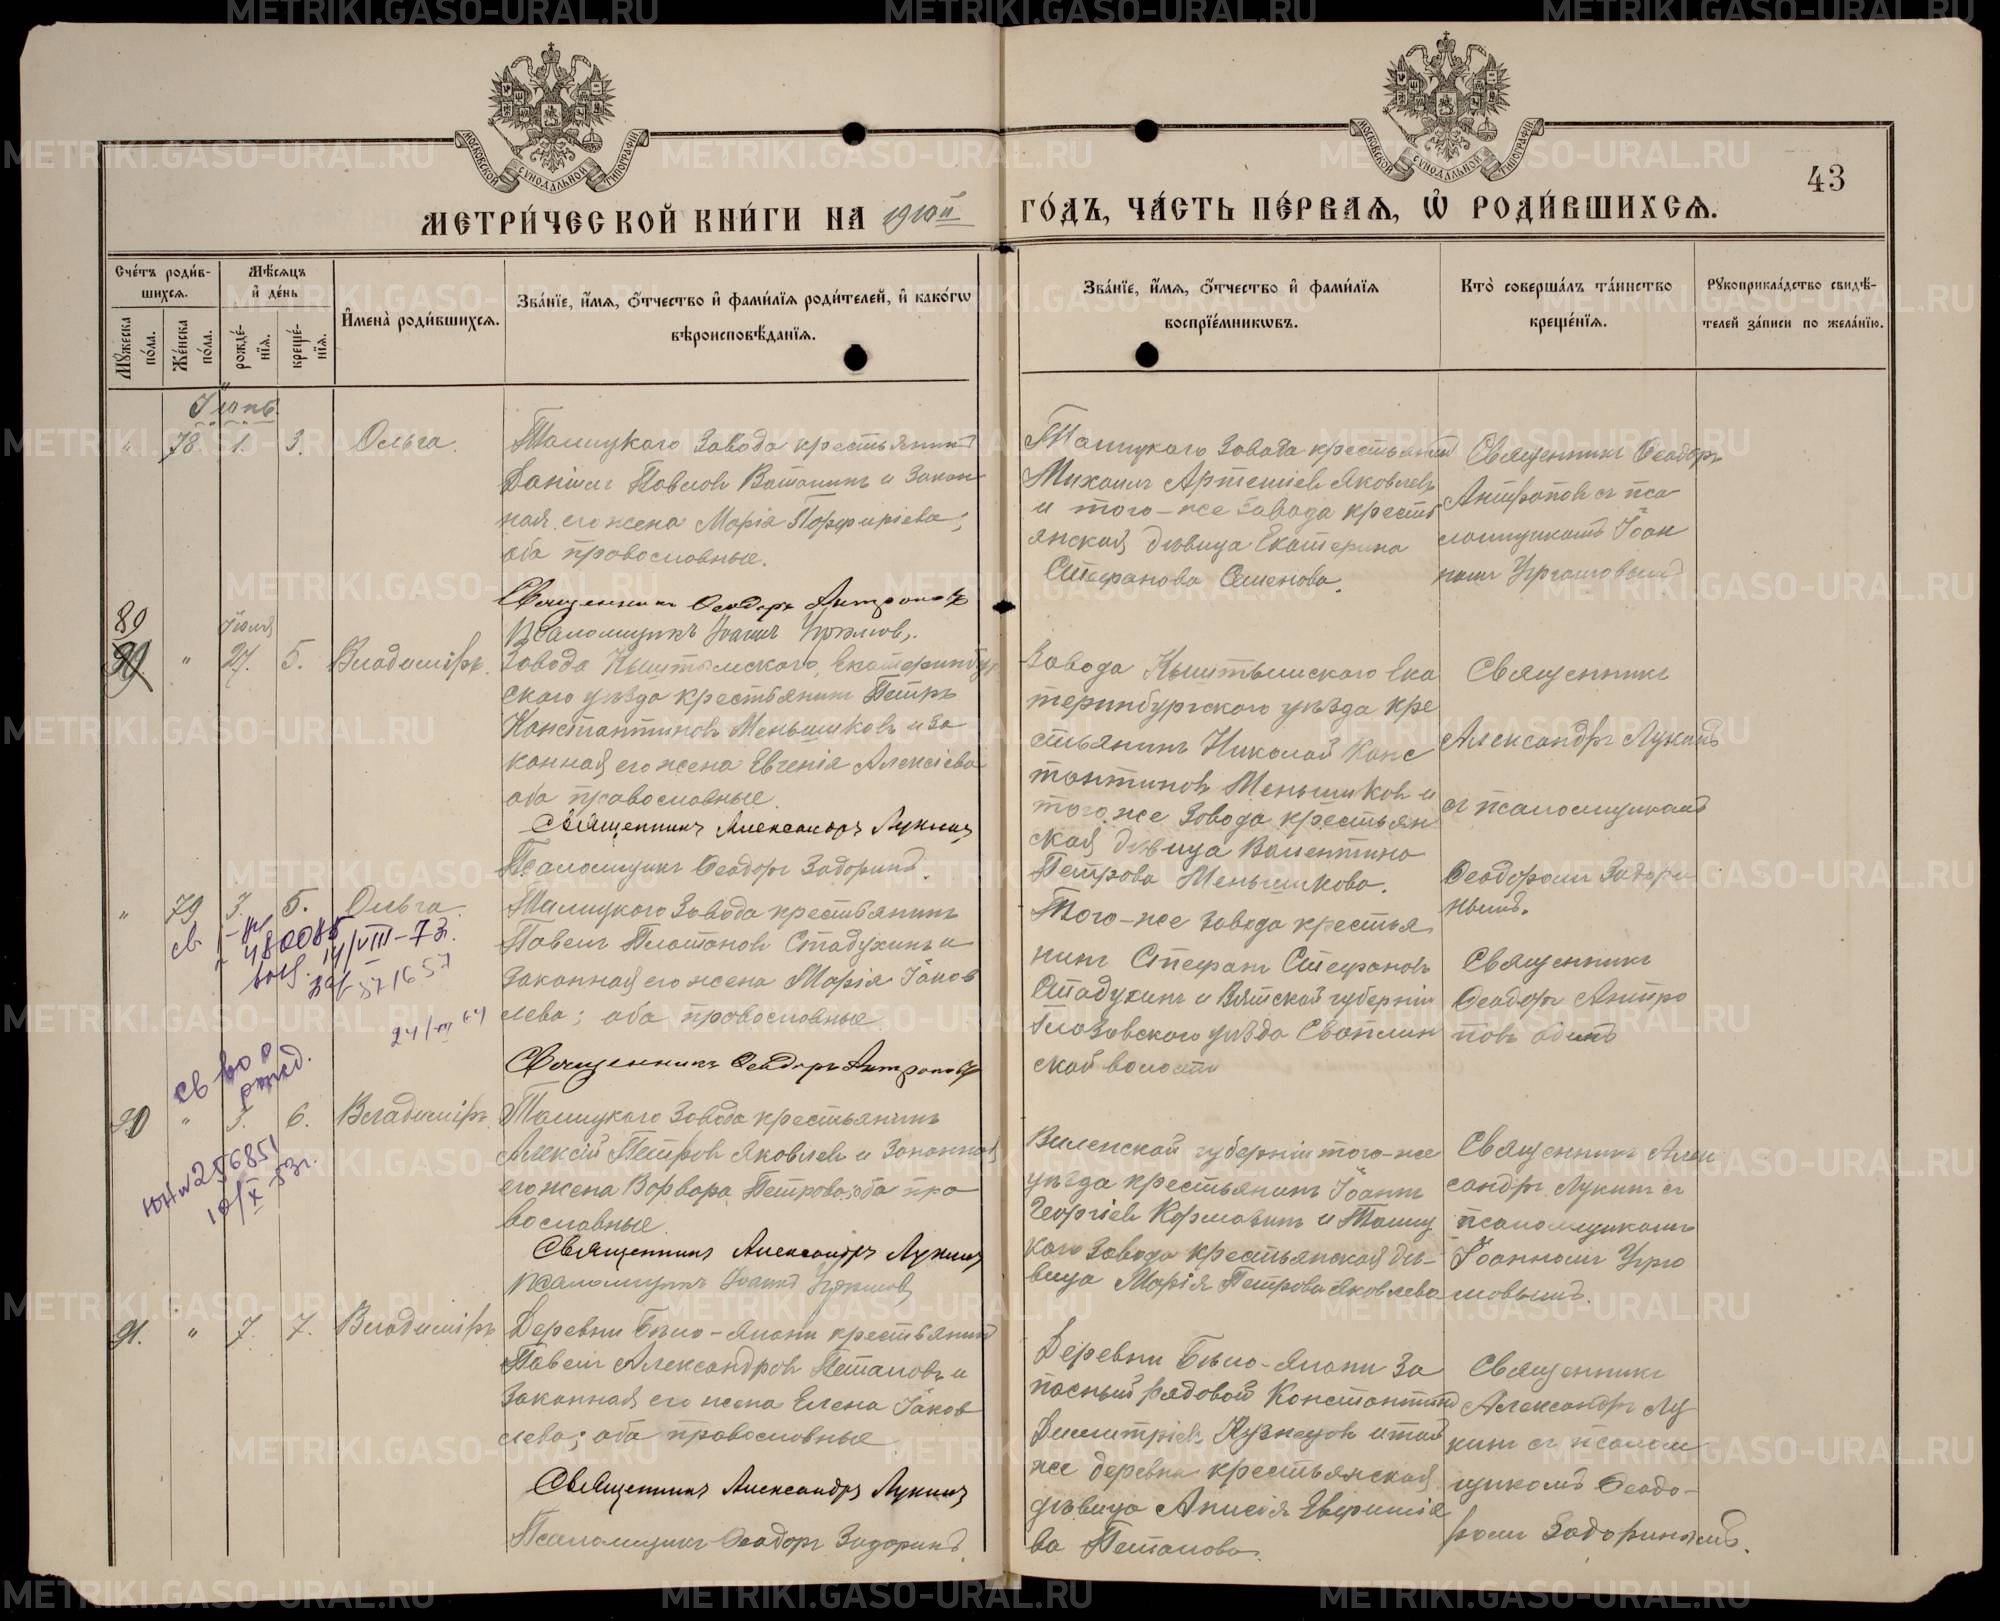 МОСКОВСКОЙ СѴНОДАЛЬНОЙ ТИПОГРАФІИ
МОСКОВСКОЙ СѴНОДАЛЬНОЙ ТИПОГРАФІИ
43
МЕТРИ́ЧЕСКОЙ КНИ́ГИ НА 1910й ГО́ДЪ, ЧА́СТЬ ПЕ́РВАЯ, Ѡ РОДИ́ВШИХСЯ.
Сче́тъ роди́в-
шихся.
Му́жеска по́ла.
Же́нска по́ла.
Мѣ́сяцъ
и де́нь
рожде́-
нія.
креще́-
нія.
Имена̀ роди́вшихся.
Зва́ніе, и́мя, о́тчество и фами́лія роди́телей, и како́гѡ
вѣроисповѣ́данія.
Зва́ніе, и́мя, о́тчество и фами́лія
воспріе́мникѡвъ.
Кто̀ соверша́лъ та́инство
креще́нія.
Рукоприкла́дство свидѣ́-
телей за́писи по жела́нію.
" 78. 1. 3. Ольга.
Талицкаго Завода крестьянинъ
Даніилъ Павловъ Ватанинъ и закон
ная его жена Марія Порфиріева;
оба православные.
Священникъ Ѳеодоръ Антроповъ
Псаломщикъ Іоаннъ
Талицкаго Завода крестьянинъ
Михаилъ Артеміевъ Яковлевъ
и того-же Завода кресть
янская дѣвица Екатерина
Стефанова Семенова.
Священникъ Ѳеодоръ
Антроповъ съ пса
ломщикомъ Іоан
номъ
89
Іюля
" 27. 5. Владиміръ.
Завода Кыштымскаго, Екатеринбур
скаго уѣзда крестьянинъ Петръ
Константиновъ Меньшиковъ и за
конная его жена Евгенія Алексіева
оба православные.
Священникъ Александръ Лукинъ
Псаломщикъ Ѳеодоръ Задоринъ.
Завода Кыштымскаго Ека
теринбургскаго уѣзда кре
стьянинъ Николай Конс
тантиновъ Меньшиковъ и
того же Завода крестьян
ская дѣвица Валентина
Петрова Меньшикова.
Священникъ
Александръ Лукинъ
съ псаломщикомъ
Ѳеодоромъ Задори
нымъ.
" 79 3. 5. Ольга.
Талицкаго Завода крестьянинъ
Павелъ Платоновъ Стадухинъ и
законная его жена Марія Іаков
лева; оба православные
Священникъ Ѳеодоръ Антроповъ
Того-же Завода крестья
нинъ Стефанъ Стефановъ
Стадухинъ и Вятской губерніи
Глазовскаго уѣзда
ской волости
Священникъ
Ѳеодоръ Антро
повъ одинъ
480085
14/VIII-73г.
571657
24/III 64
90 " 5. 6. Владиміръ.
Талицкаго Завода крестьянинъ
Алексій Петровъ Яковлевъ и Законная
его жена Варвара Петрова; оба пра
вославные.
Священникъ Александръ Лукинъ
Псаломщикъ Іоаннъ
Виленской губерніи того-же
уѣзда крестьянинъ Іоаннъ
Георгіевъ и Талиц
каго Завода крестьянская дѣ-
вица Марія Петрова Яковлева
Священникъ Алек
сандръ Лукинъ съ
псаломщикомъ
Іоанномъ
мовымъ.
ЮН №256851
10/IX 53г.
91. " 7. 7. Владиміръ
Деревни Бѣло-Елани крестьянинъ
Павелъ Александровъ Потаповъ и
законная его жена Елена Іаков
лева; оба православные
Священникъ Александръ Лукинъ
Псаломщикъ Ѳеодоръ Задоринъ.
Деревни Бѣло-Елани за
пасный рядовой Константинъ
Димитріевъ Кузнецовъ и той
же деревни крестьянская
дѣвица Анисія
ва Потапова.
Священникъ
Александръ Лу
кинъ съ псалом
щикомъ Ѳеодо-
ромъ Задоринымъ.